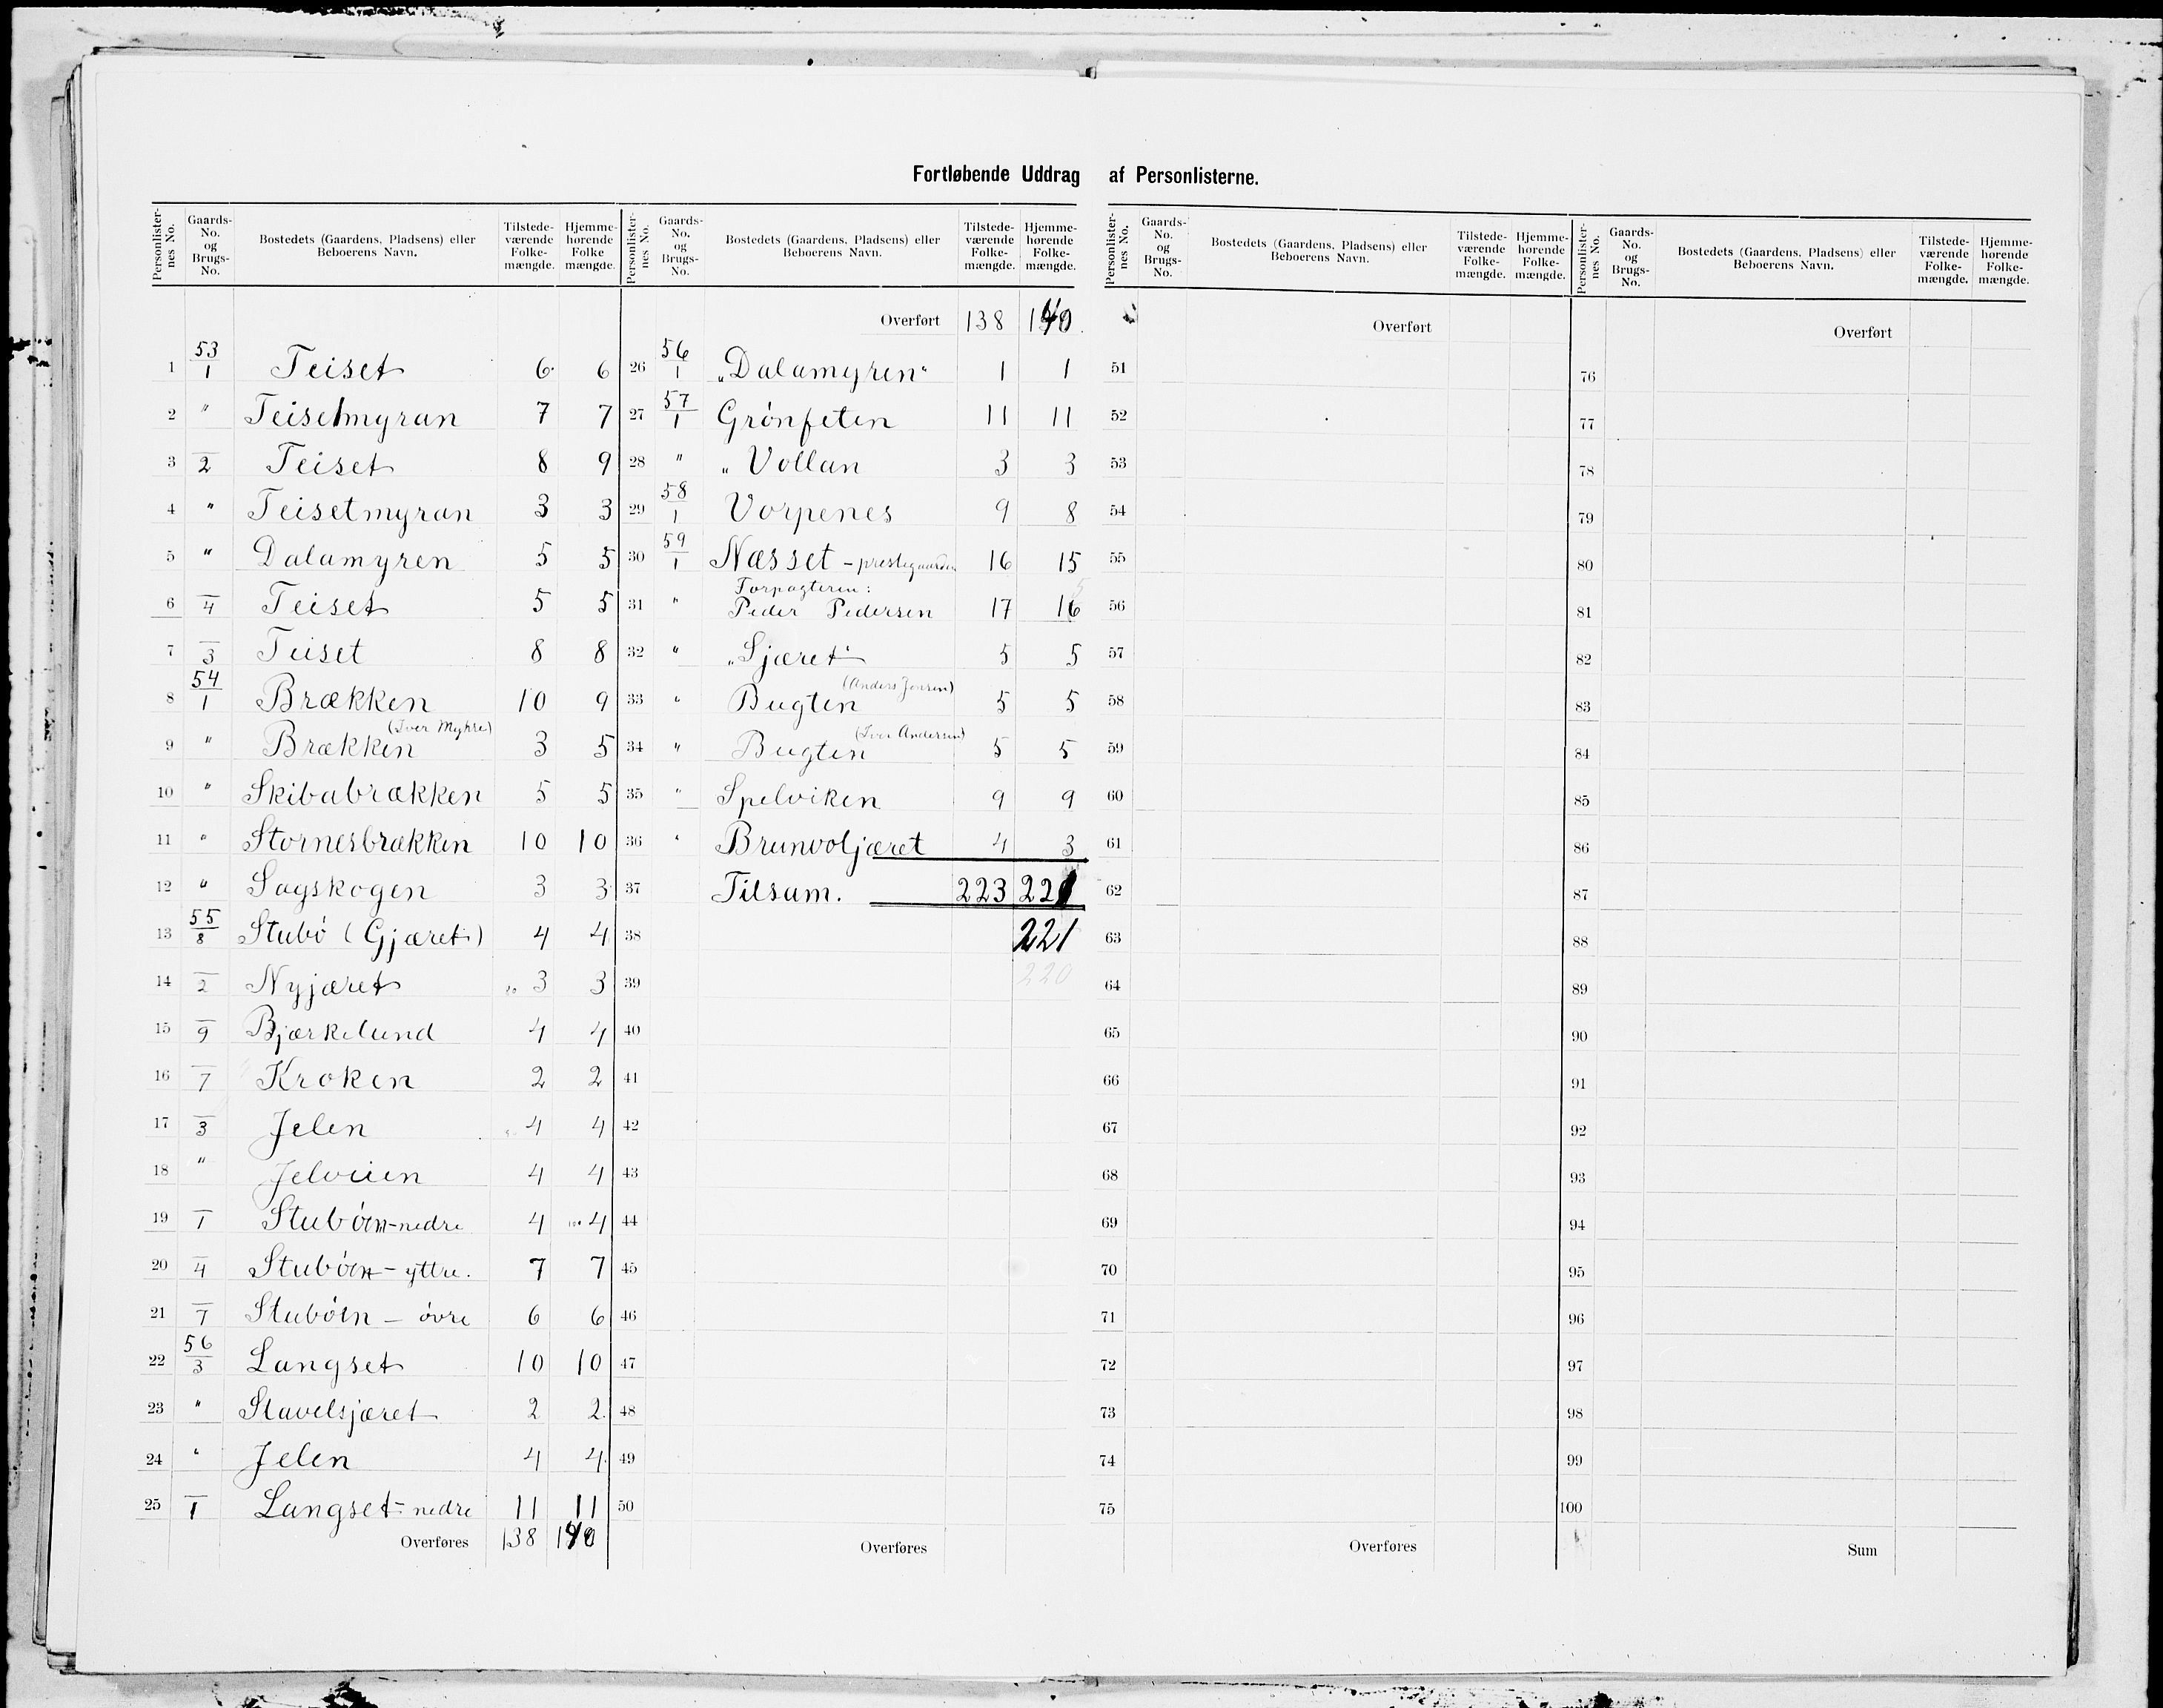 Fortløbende Uddrag af Personlisterne.
Personlisternes No. Gaards-No. og Brugs-No. Bostedets (Gaardens, Pladsens) eller Beboerens Navn. Tilstedeværende Folkemængde. Hjemmehørende Folkemængde.
1 53/1 Teiset 6 6
2 " Teisetmyran 7 7
3 /2 Teiset 8 9
4 " Teisetmyran 3 3
5 " Dalamyren 5 5
6 /4 Teiset 5 5
7 /3 Teiset 8 8
8 54/1 Brækken 10 9
9 " Brækken (Iver Myhre) 3 5
10 " Skibabrækken 5 5
11 " Stornesbrækken 10 10
12 " Sagskogen 3 3
13 55/8 Stubø (Gjæret) 4 4
14 /2 Nyjæret 3 3
15 /9 Bjærkelund 4 4
16 /7 Kroken 2 2
17 /3 Jelen 4 4
18 " Jelveien 4 4
19 /1 Stubøen-nedre 4 4
20 /4 Stubøen-yttre. 7 7
21 /7 Stubøen - øvre 6 6
22 56/3 Langset 10 10
23 " Stavelsjæret 2 2
24 " Jelen 4 4
25 /1 Langset-nedre 11 11
Overføres 138 140
Personlisternes No. Gaards-No. og Brugs-No. Bostedets (Gaardens, Pladsens) eller Beboerens Navn. Tilstedeværende Folkemængde. Hjemmehørende Folkemængde.
Overført 138 140
26 56/1 "Dalamyren" 1 1
27 57/1 Grønfeten 11 11
28 " " Vollan 3 3
29 58/1 Vorpenes 9 8
30 59/1 Næsset - prestegaarden 16 15
31 " Forpagteren:
Peder Pedersen 17 16
32 " "Sjæret" 5 5
33 " Bugten (Anders Jensen) 5 5
34 " Bugten (Iver Andersen) 5 5
35 " Spelviken 9 9
36 " Brunvoljæret 4 3
37 Tilsam. 223 221
38 221
39 220
40
41
42
43
44
45
46
47
48
49
50
Overføres
Personlisternes No. Gaards-No. og Brugs-No. Bostedets (Gaardens, Pladsens) eller Beboerens Navn. Tilstedeværende Folkemængde. Hjemmehørende Folkemængde.
Overført
51
52
53
54
55
56
57
58
59
60
61
62
63
64
65
66
67
68
69
70
71
72
73
74
75
Overføres
Personlisternes No. Gaards-No. og Brugs-No. Bostedets (Gaardens, Pladsens) eller Beboerens Navn. Tilstedeværende Folkemængde. Hjemmehørende Folkemængde.
Overført
76
77
78
79
80
81
82
83
84
85
86
87
88
89
90
91
92
93
94
95
96
97
98
99
100
Sum